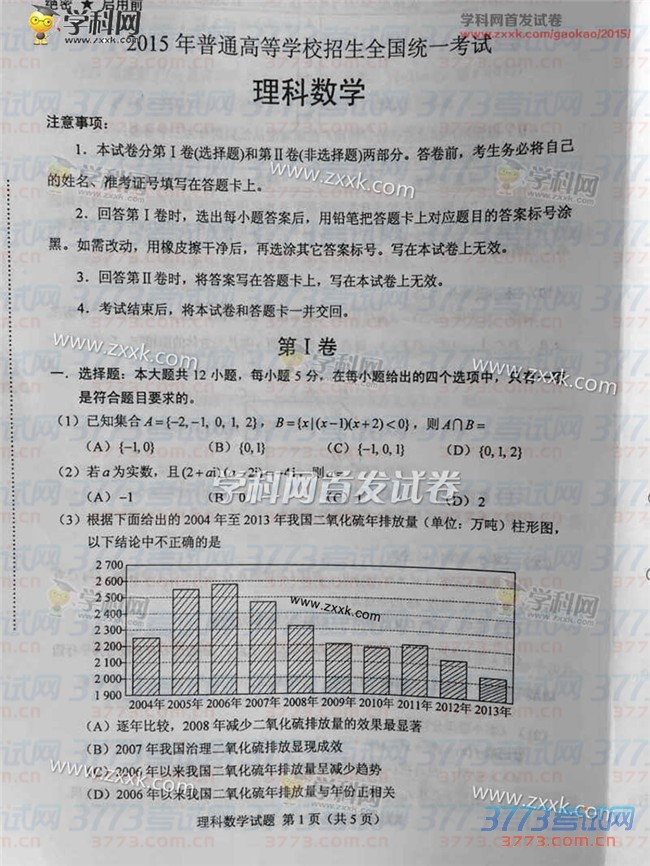 绝密★启用前
学科网
学科网首发试卷
www.zxxk.com/gaokao/2015/
2015年普通高等学校招生全国统一考试
理科数学
注意事项：
1．本试卷分第Ⅰ卷(选择题)和第Ⅱ卷(非选择题)两部分。答卷前，考生务必将自己
的姓名、准考证号填写在答题卡上。
2．回答第Ⅰ卷时，选出每小题答案后，用铅笔把答题卡上对应题目的答案标号涂
黑。如需改动，用橡皮擦干净后，再选涂其它答案标号。写在本试卷上无效。
3．回答第Ⅱ卷时，将答案写在答题卡上，写在本试卷上无效。
4．考试结束后，将本试卷和答题卡一并交回。
第Ⅰ卷
一．选择题：本大题共12小题，每小题5分，在每小题给出的四个选项中，只有一项
是符合题目要求的。
（1）已知集合A={-2,-1,0,1,2}，B={x|(x-1)(x+2)<0}，则A∩B=
（A）{-1,0} （B）{0,1} （C）{-1,0,1} （D）{0,1,2}
（2）若a为实数，且(2+ai)(a-2i)=-4i，则a=
（A）-1 （B）0 （C）1 （D）2
学科网首发试卷
（3）根据下面给出的2004年至2013年我国二氧化硫年排放量（单位：万吨）柱形图，
以下结论中不正确的是
2 700
2 600
2 500
2 400
2 300
2 200
2 100
2 000
1 900
www.zxxk.com
2004年 2005年 2006年 2007年 2008年 2009年 2010年 2011年 2012年 2013年
（A）逐年比较，2008年减少二氧化硫排放量的效果最显著
（B）2007年我国治理二氧化硫排放显现成效
（C）2006年以来我国二氧化硫年排放量呈减少趋势
（D）2006年以来我国二氧化硫年排放量与年份正相关
www.zxxk.com
理科数学试题 第1页（共5页）
3773考试网
3773.com.cn